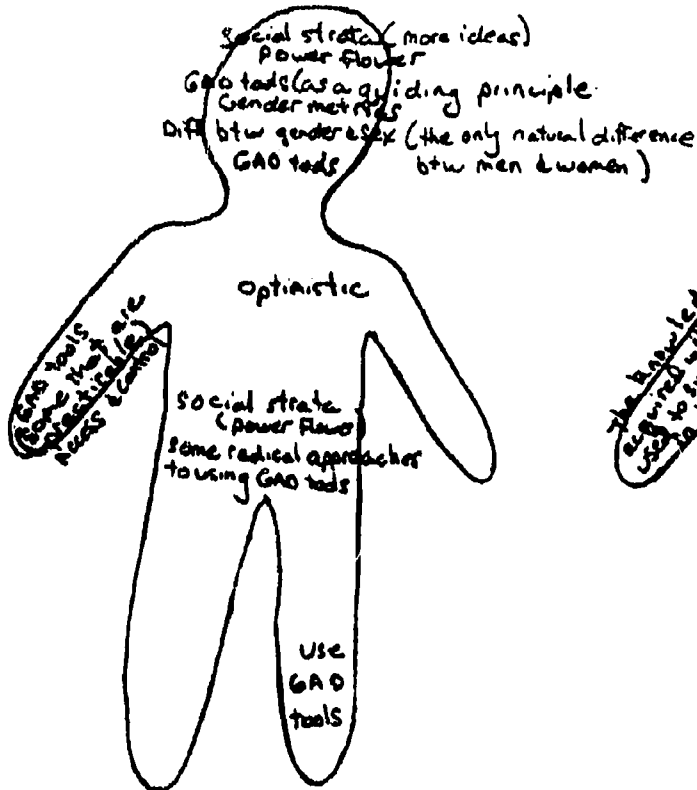 Social strata (more ideas)
Power Flower
GAD tools (as a guiding principle
Gender metrics
Diff btw gender & sex (the only natural difference
btw men & women)
GAD tools
optimistic
GAD tools
(some that are
practicable)
Access & Control
Social strata
(power flower)
some radical approaches
to using GAD tools
The
acquired
used to
Use
GAD
tools